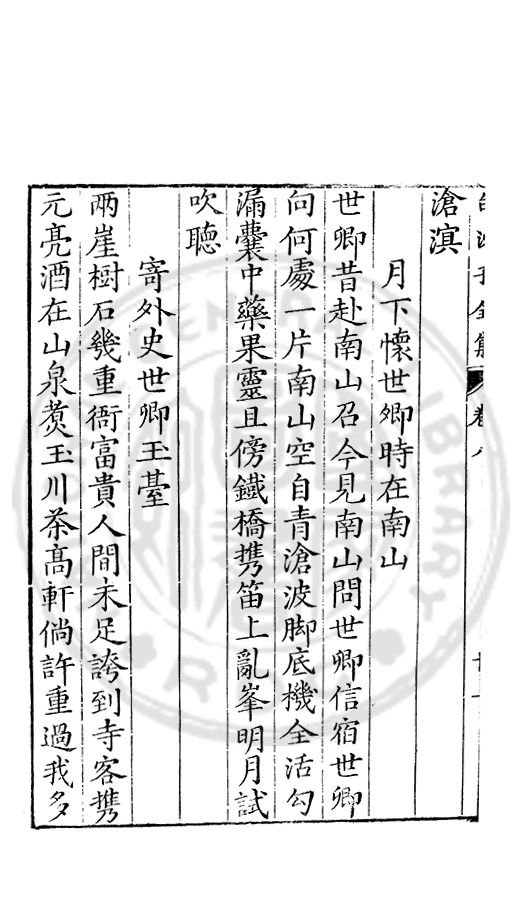 滄溟
月下懷世卿時在南山
世卿昔赴南山召今見南山問世卿信宿世卿
向何處一片南山空自青滄波脚底機全活勾
漏囊中藥果靈且傍鐵橋携笛上亂峯明月試
吹聽
寄外史世卿玉臺
兩崖樹石幾重衙富貴人間未足誇到寺客携
元亮酒在山泉煑玉川茶高軒倘許重過我多